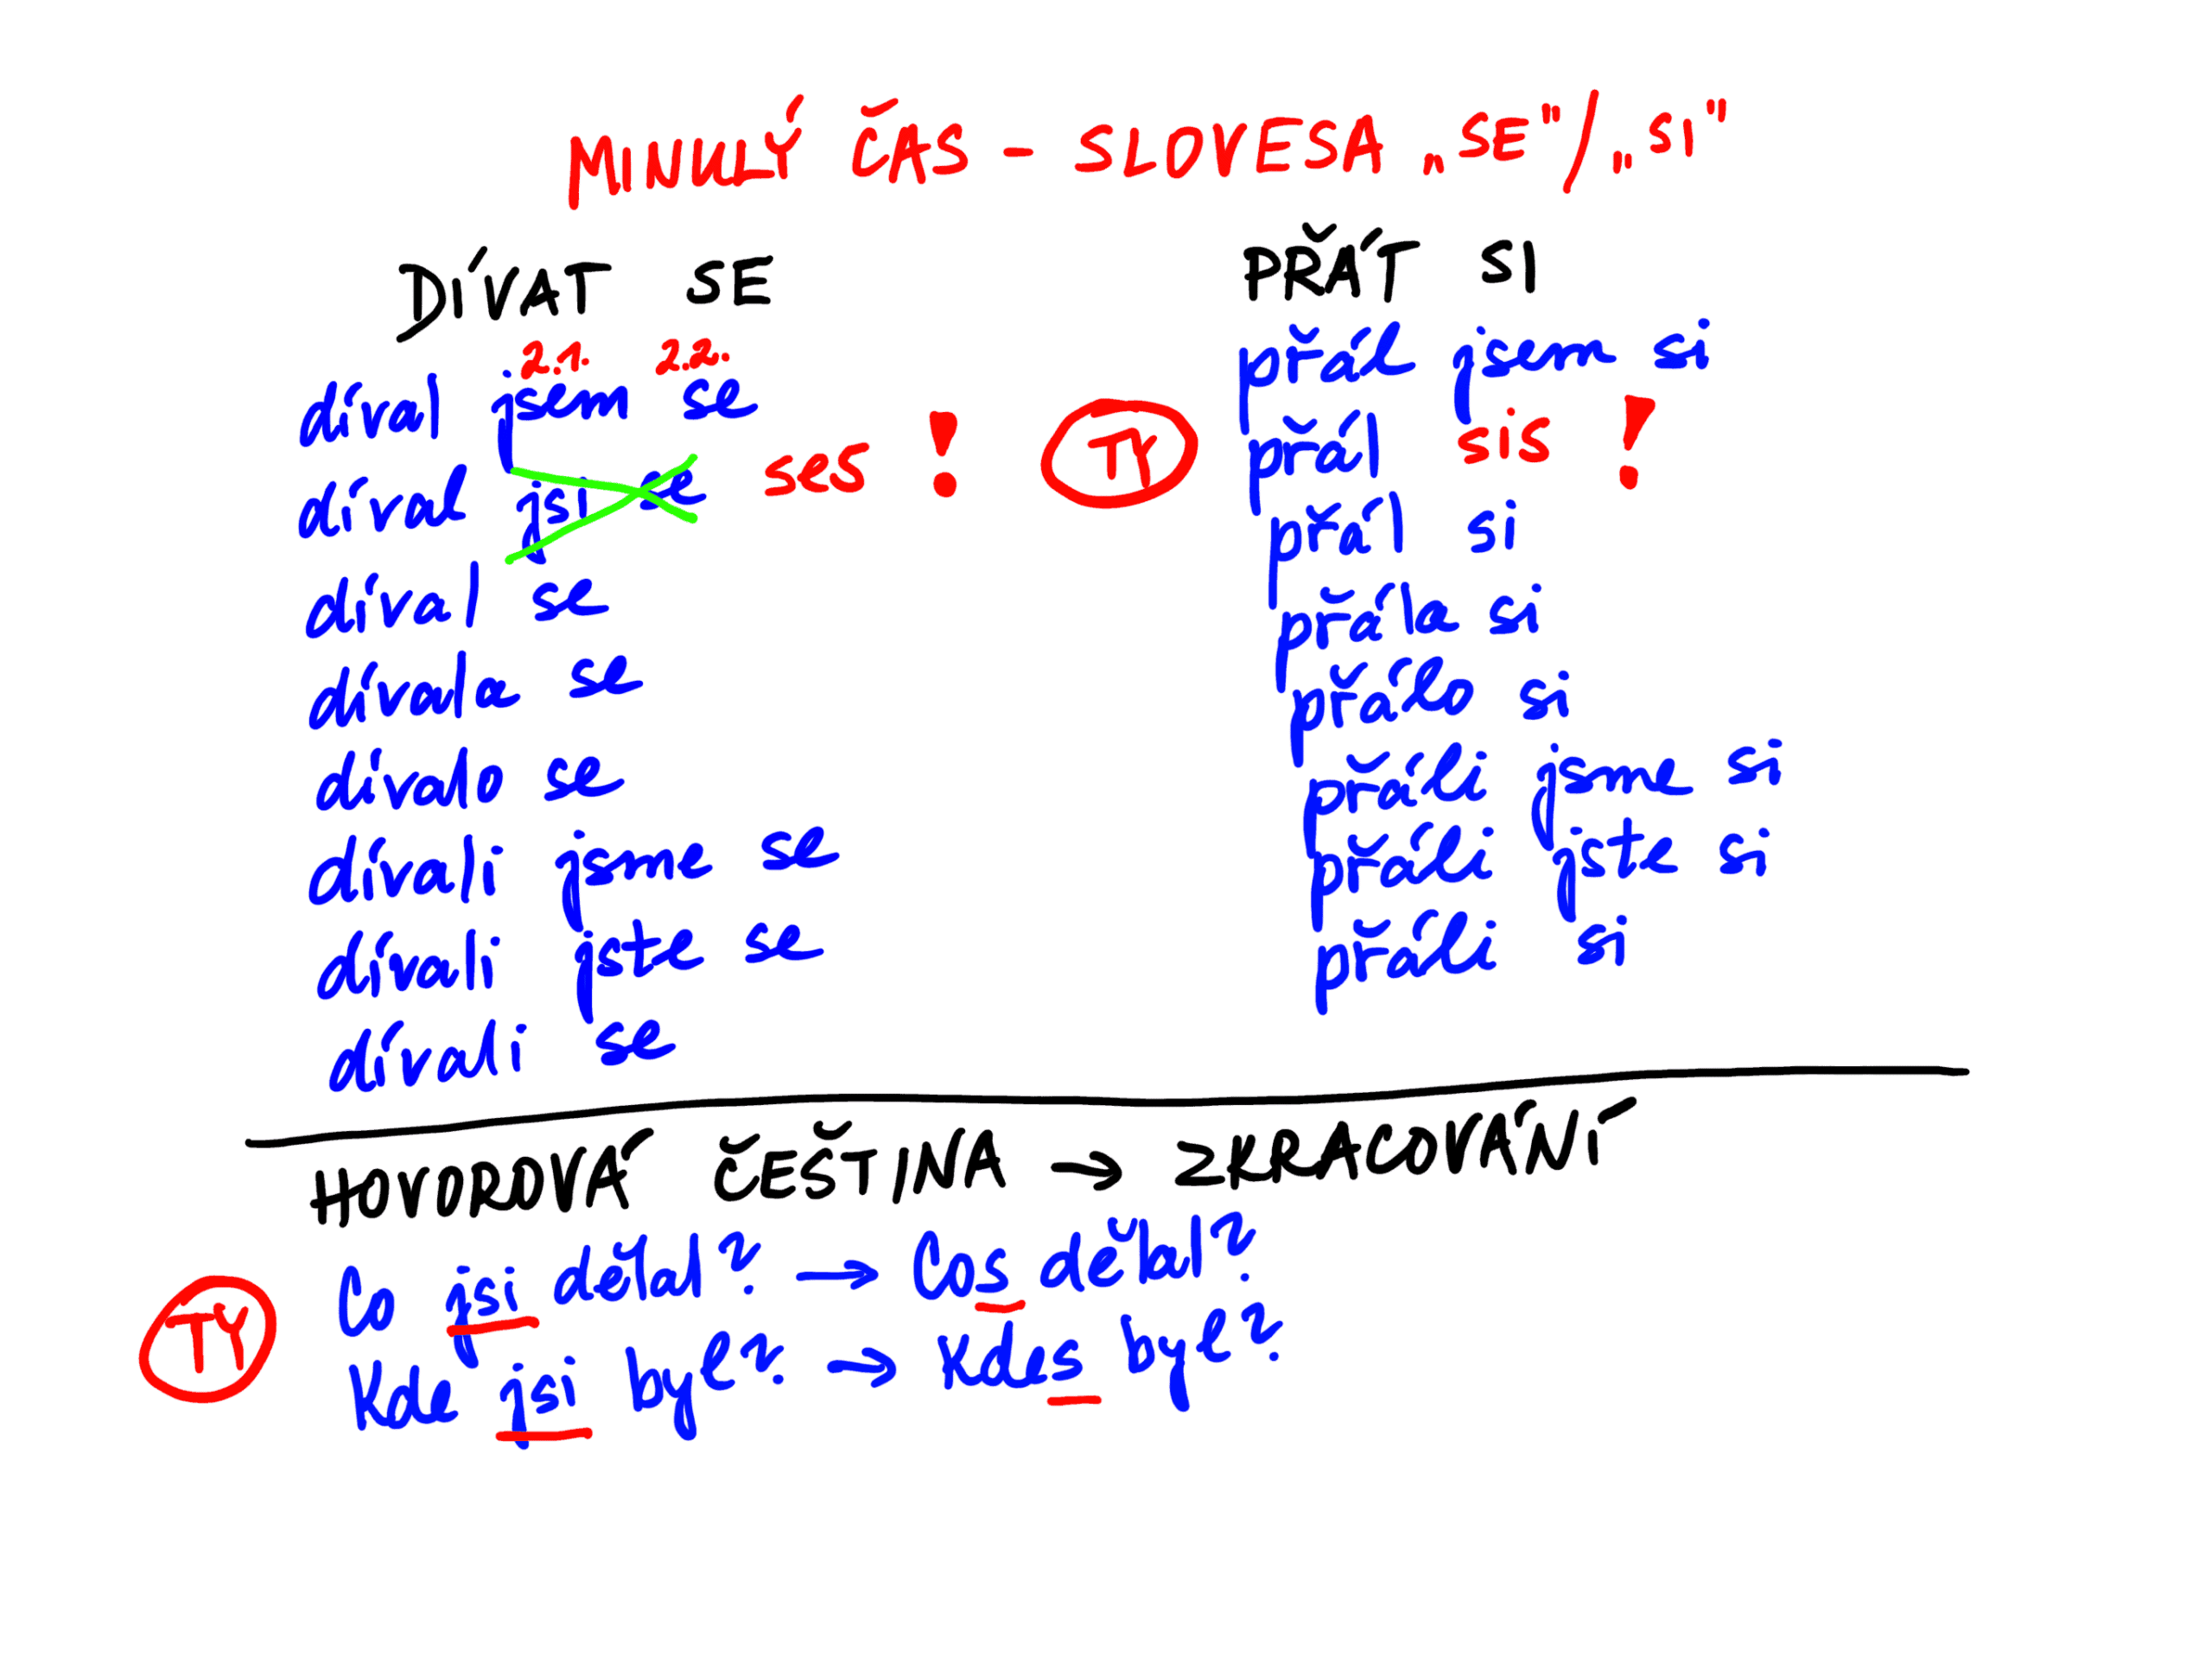 MINULÝ ČAS – SLOVESA „SE"/„SI"
DÍVAT SE
2.1. 2.2.
díval jsem se
díval jsi se ses !
díval se
dívala se
dívalo se
dívali jsme se
dívali jste se
dívali se
TY
PŘÁT SI
přál jsem si
přál sis !
přál si
přála si
přálo si
přáli jsme si
přáli jste si
přáli si
HOVOROVÁ ČEŠTINA → ZKRACOVÁNÍ
TY
Co jsi dělal? → Cos dělal?
Kde jsi byl? → Kdes byl?